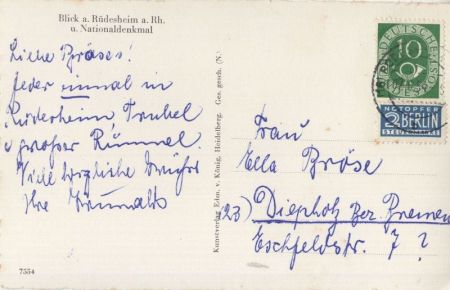 Blick a. Rüdesheim a. Rh.
u. Nationaldenkmal
Liebe Bröses!
Jeder einmal in
Rüdesheim, Trubel
u. großer Rummel.
Viele herzliche Grüße
Ihre
7554
Kunstverlag Edm. v. König, Heidelberg. Ges. gesch. (N.)
DEUTSCHE POST
10
NOTOPFER
2 BERLIN
STEUERMARKE
Frau
Ella Bröse
(23) Diepholz Bez. Bremen
Eschfeldstr. 7 ?